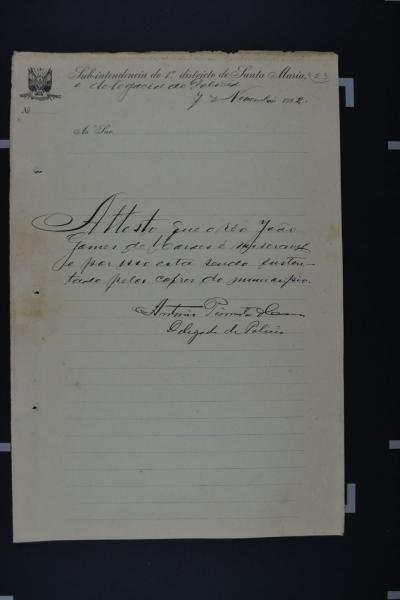 Sub-intendencia do 1º districto de Santa Maria, 253
e delegacia de Policia
7 de Novembro 1912.
Nº
Ao Snr.
Attesto que o réo João
Gomes de Moraes é miseravel
e por isso está sendo susten-
tado pelos cofres do municipio.
Antonio
Delegado de Policia